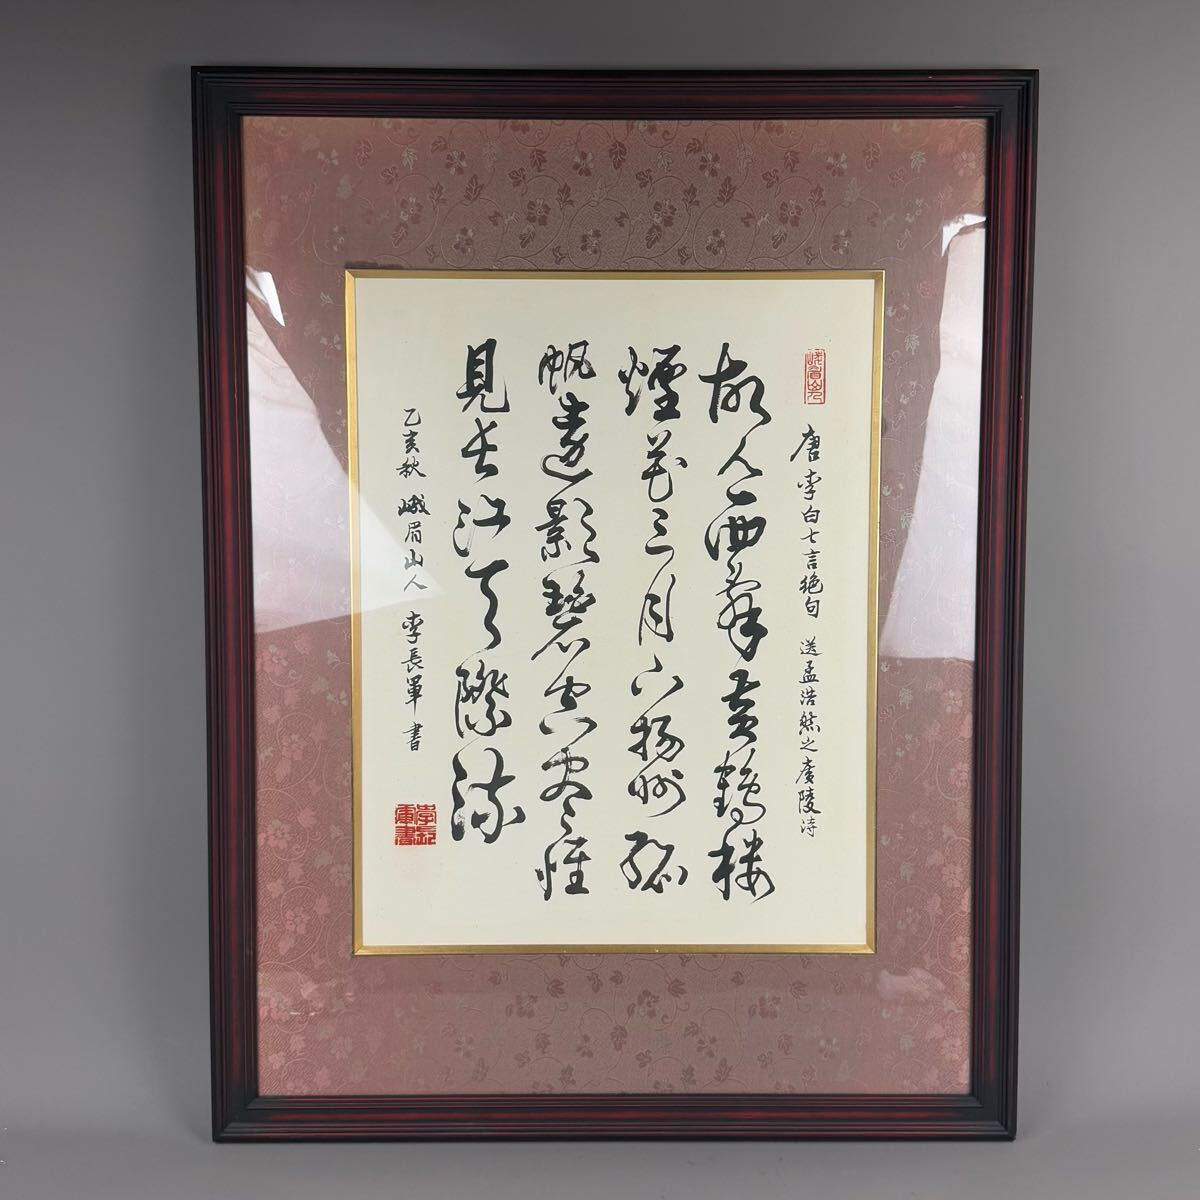 唐李白七言絶句 送孟浩然之廣陵诗
故人西辞黄鶴楼
煙花三月下揚州孤
帆遠影碧空盡惟
見長江天際流
乙亥秋 峨眉山人 李長軍書
李長軍書